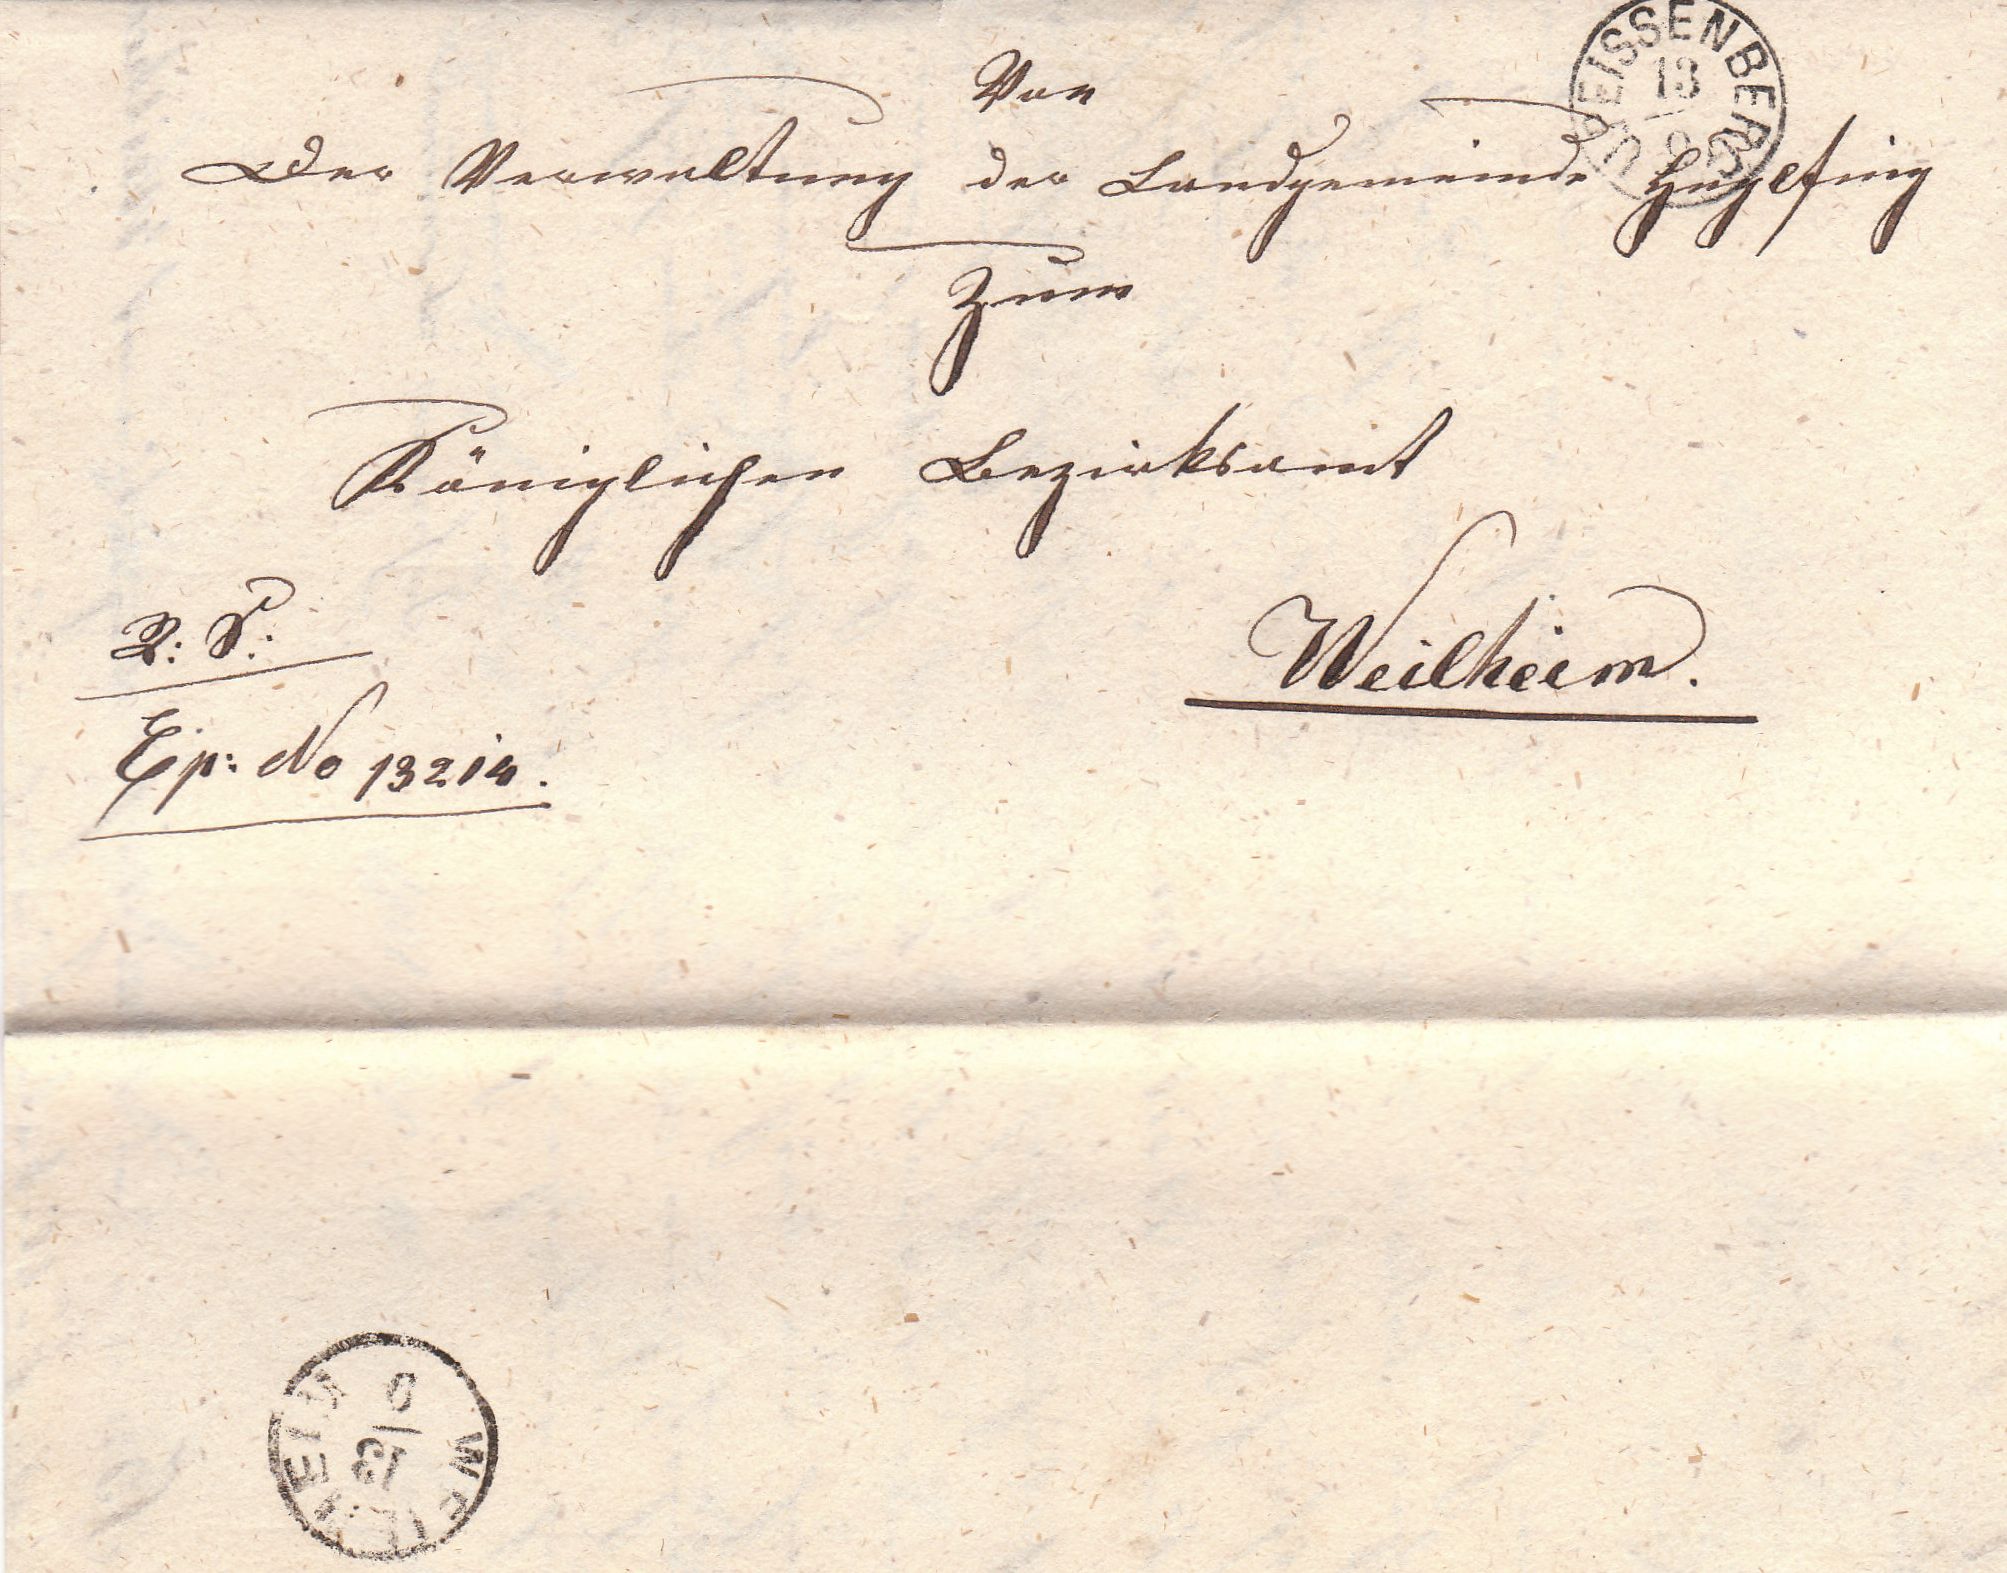 Von
Der Verwaltung der Landgemeinde Huglfing
Zum
Königlichen Bezirksamt
Weilheim.
R: S:
Exp: No 13214.
PEISSENBERG
13
9
WEILHEIM
13
9